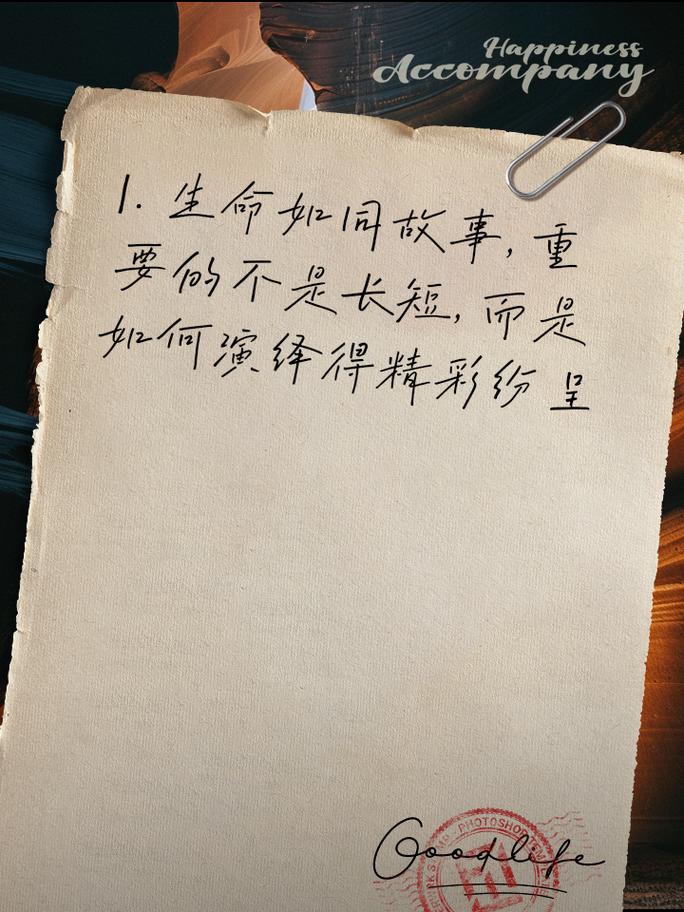 Happiness
Accompany
1. 生命如同故事, 重
要的不是长短, 而是
如何演绎得精彩纷呈
PHOTOSHOP
Goodlife